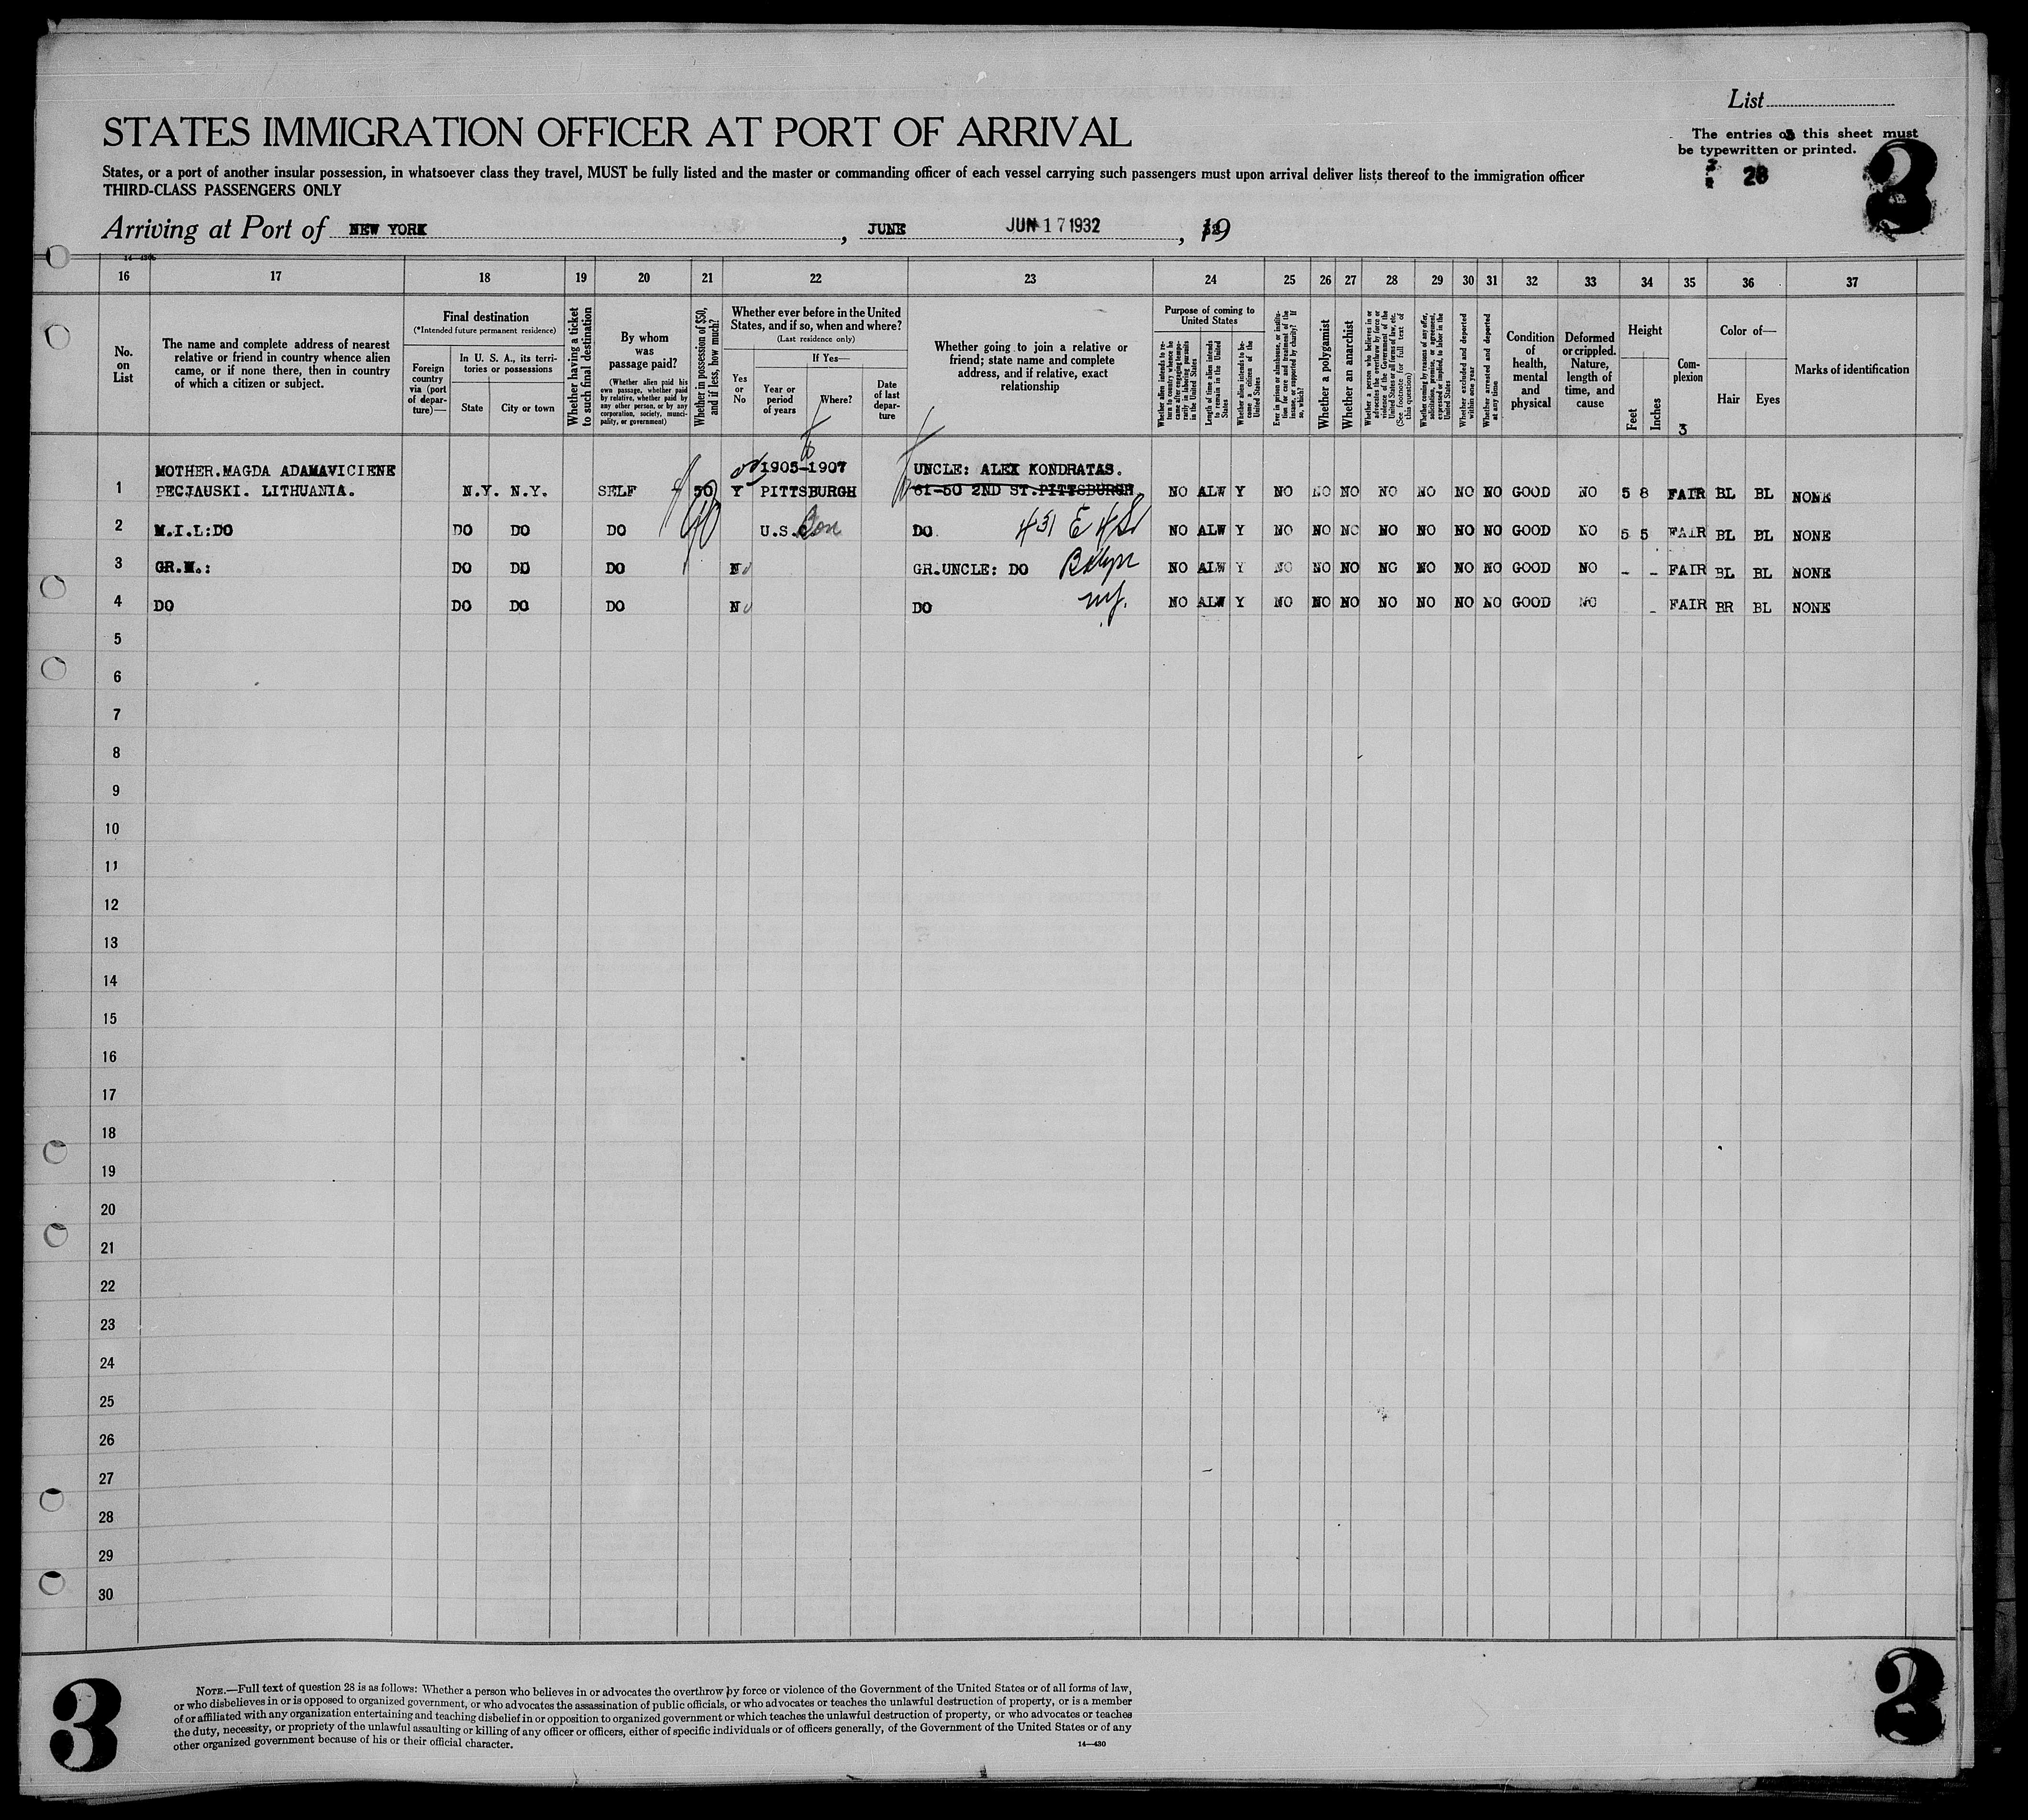 List
STATES IMMIGRATION OFFICER AT PORT OF ARRIVAL
The entries on this sheet must
be typewritten or printed.
States, or a port of another insular possession, in whatsoever class they travel, MUST be fully listed and the master or commanding officer of each vessel carrying such passengers must upon arrival deliver lists thereof to the immigration officer
THIRD-CLASS PASSENGERS ONLY
28
3
Arriving at Port of NEW YORK, JUNE JUN 17 1932, 19
16 17 18 19 20 21 22 23 24 25 26 27 28 29 30 31 32 33 34 35 36 37
No.
on
List
The name and complete address of nearest
relative or friend in country whence alien
came, or if none there, then in country
of which a citizen or subject.
Final destination
(*Intended future permanent residence)
Foreign
country
via (port
of depar-
ture)—
In U. S. A., its terri-
tories or possessions
State
City or town
Whether having a ticket
to such final destination
By whom
was
passage paid?
(Whether alien paid his
own passage, whether paid
by relative, whether paid by
any other person, or by any
corporation, society, munici-
pality, or government)
Whether in possession of $50,
and if less, how much?
Whether ever before in the United
States, and if so, when and where?
(Last residence only)
Yes
or
No
If Yes—
Year or
period
of years
Where?
Date
of last
depar-
ture
Whether going to join a relative or
friend; state name and complete
address, and if relative, exact
relationship
Purpose of coming to
United States
Whether alien intends to re-
turn to country whence he
came after engaging tempo-
rarily in laboring pursuits
in the United States
Length of time alien intends
to remain in the United
States
Whether alien intends to be-
come a citizen of the
United States
Ever in prison or almshouse, or institu-
tion for care and treatment of the
insane, or supported by charity? If
so, which?
Whether a polygamist
Whether an anarchist
Whether a person who believes in or
advocates the overthrow by force or
violence of the Government of the
United States or all forms of law, etc.
(See footnote for full text of
this question)
Whether coming by reasons of any offer,
solicitation, promise, or agreement,
expressed or implied, to labor in the
United States
Whether excluded and deported
within one year
Whether arrested and deported
at any time
Condition
of
health,
mental
and
physical
Deformed
or crippled.
Nature,
length of
time, and
cause
Height
Feet
Inches
Com-
plexion
3
Color of—
Hair
Eyes
Marks of identification
MOTHER.MAGDA ADAMAVICIENE 1905-1907 UNCLE: ALEX KONDRATAS.
1 PECJAUSKI. LITHUANIA. N.Y. N.Y. SELF 50 Y PITTSBURGH 61-50 2ND ST.PITTSBURGH NO ALW Y NO NO NO NO NO NO NO GOOD NO 5 8 FAIR BL BL NONE
2 M.I.L:DO DO DO DO 90 U.S. Born DO 431 E 4 St NO ALW Y NO NO NO NO NO NO NO GOOD NO 5 5 FAIR BL BL NONE
3 GR.M.: DO DO DO No GR.UNCLE: DO Bklyn NO ALW Y NO NO NO NO NO NO NO GOOD NO - - FAIR BL BL NONE
4 DO DO DO DO No DO NY. NO ALW Y NO NO NO NO NO NO NO GOOD NO - FAIR BR BL NONE
5
6
7
8
9
10
11
12
13
14
15
16
17
18
19
20
21
22
23
24
25
26
27
28
29
30
3
NOTE.—Full text of question 28 is as follows: Whether a person who believes in or advocates the overthrow by force or violence of the Government of the United States or of all forms of law,
or who disbelieves in or is opposed to organized government, or who advocates the assassination of public officials, or who advocates or teaches the unlawful destruction of property, or is a member
of or affiliated with any organization entertaining and teaching disbelief in or opposition to organized government or which teaches the unlawful destruction of property, or who advocates or teaches
the duty, necessity, or propriety of the unlawful assaulting or killing of any officer or officers, either of specific individuals or of officers generally, of the Government of the United States or of any
other organized government because of his or their official character.
14—430
3